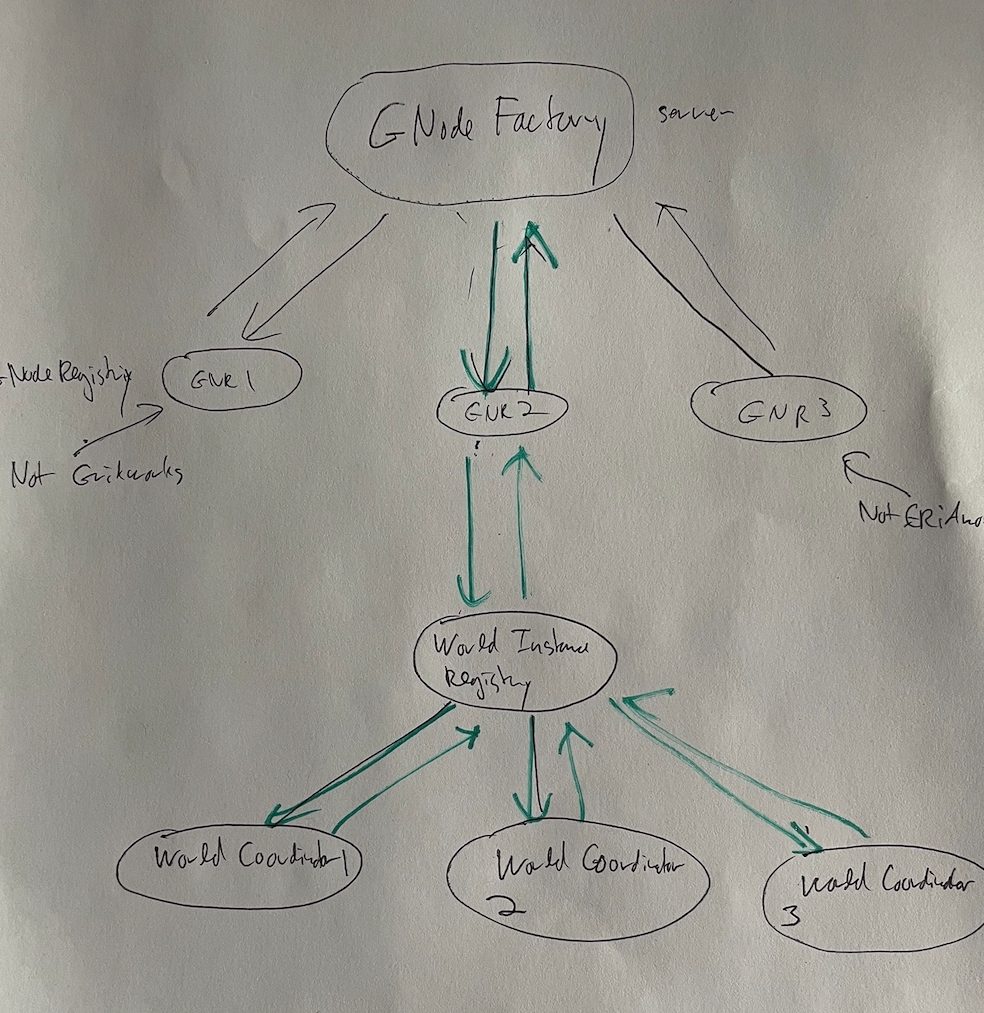 GNode Factory
server
GNodeRegistry
GNR 1
GNR 2
GNR 3
Not Gridworks
Not
World Instance
Registry
World Coordinator 1
World Coordinator
2
World Coordinator
3